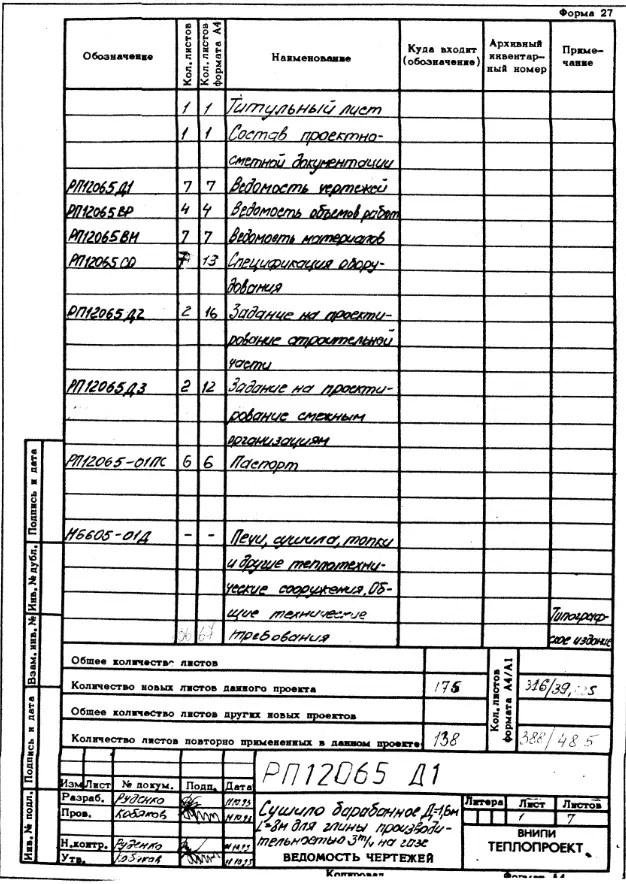 Форма 27
Обозначение Кол. листов Кол. листов формата А4 Наименование Куда входит (обозначение) Архивный инвентар-ный номер Приме-чание
1 1 Титульный лист
1 1 Состав проектно-
сметной документации
РП12065Д1 7 7 Ведомость чертежей
РП12065ВР 4 4 Ведомость объемов работ
РП12065ВМ 7 7 Ведомость материалов
РП12065СО 7 13 Спецификация обору-
дования
РП12065Д2 2 16 Задание на проекти-
рование строительной
части
РП12065Д3 2 12 Задание на проекти-
рование смежным
организациям
РП12065-01ПС 6 6 Паспорт
Н6605-01Д - - Печи, сушила, топки
и другие теплотехни-
ческие сооружения. Об-
щие технические Типограф-
требования ское издание
Общее количество листов
Количество новых листов данного проекта 175 316/39,
Общее количество листов других новых проектов
Количество листов повторно примененных в данном проекте 138 388/48.5
Кол. листов формата А4/А1
Подпись и дата
Инв. № дубл.
Взам. инв. №
Подпись и дата
Инв. № подл.
РП12065 Д1
Изм Лист № докум. Подп. Дата
Разраб. Руденко
Пров. Кобяков
Н.контр. Руденко
Утв.
Сушило барабанное Д=1,6м
L=8м для глины производи-
тельностью 3т/ч на газе
ВЕДОМОСТЬ ЧЕРТЕЖЕЙ
Литера Лист Листов
1 7
ВНИПИ
ТЕПЛОПРОЕКТ
Копировал Формат А4